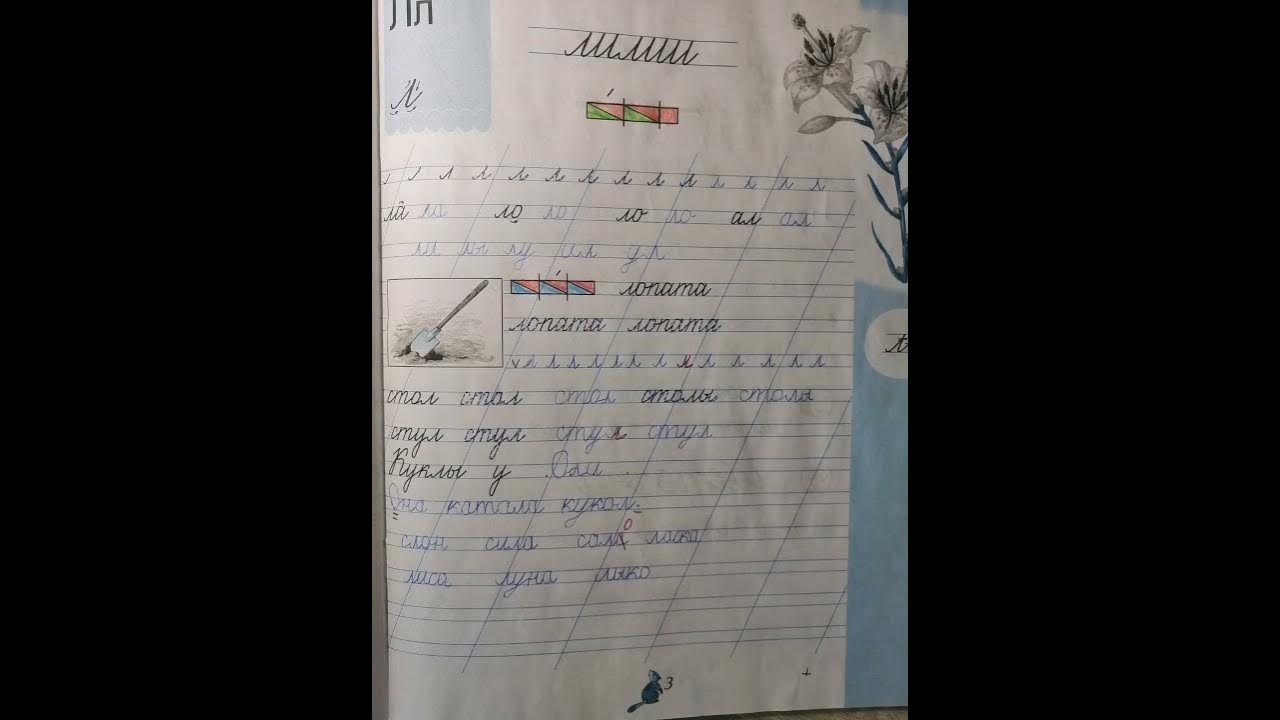 Лл
лилии
Л
л л л л л л л л л л л л л л
ла ла ло ло ло ло ал ал
ли лы лу ил ул
лопата
лопата лопата
л л л л л л л л л л л л
Л
стол стол стол столы столы
стул стул стул стул
Куклы у Оли.
Она катала кукол.
слон сила сала о ласка
лиса луна лыко
3